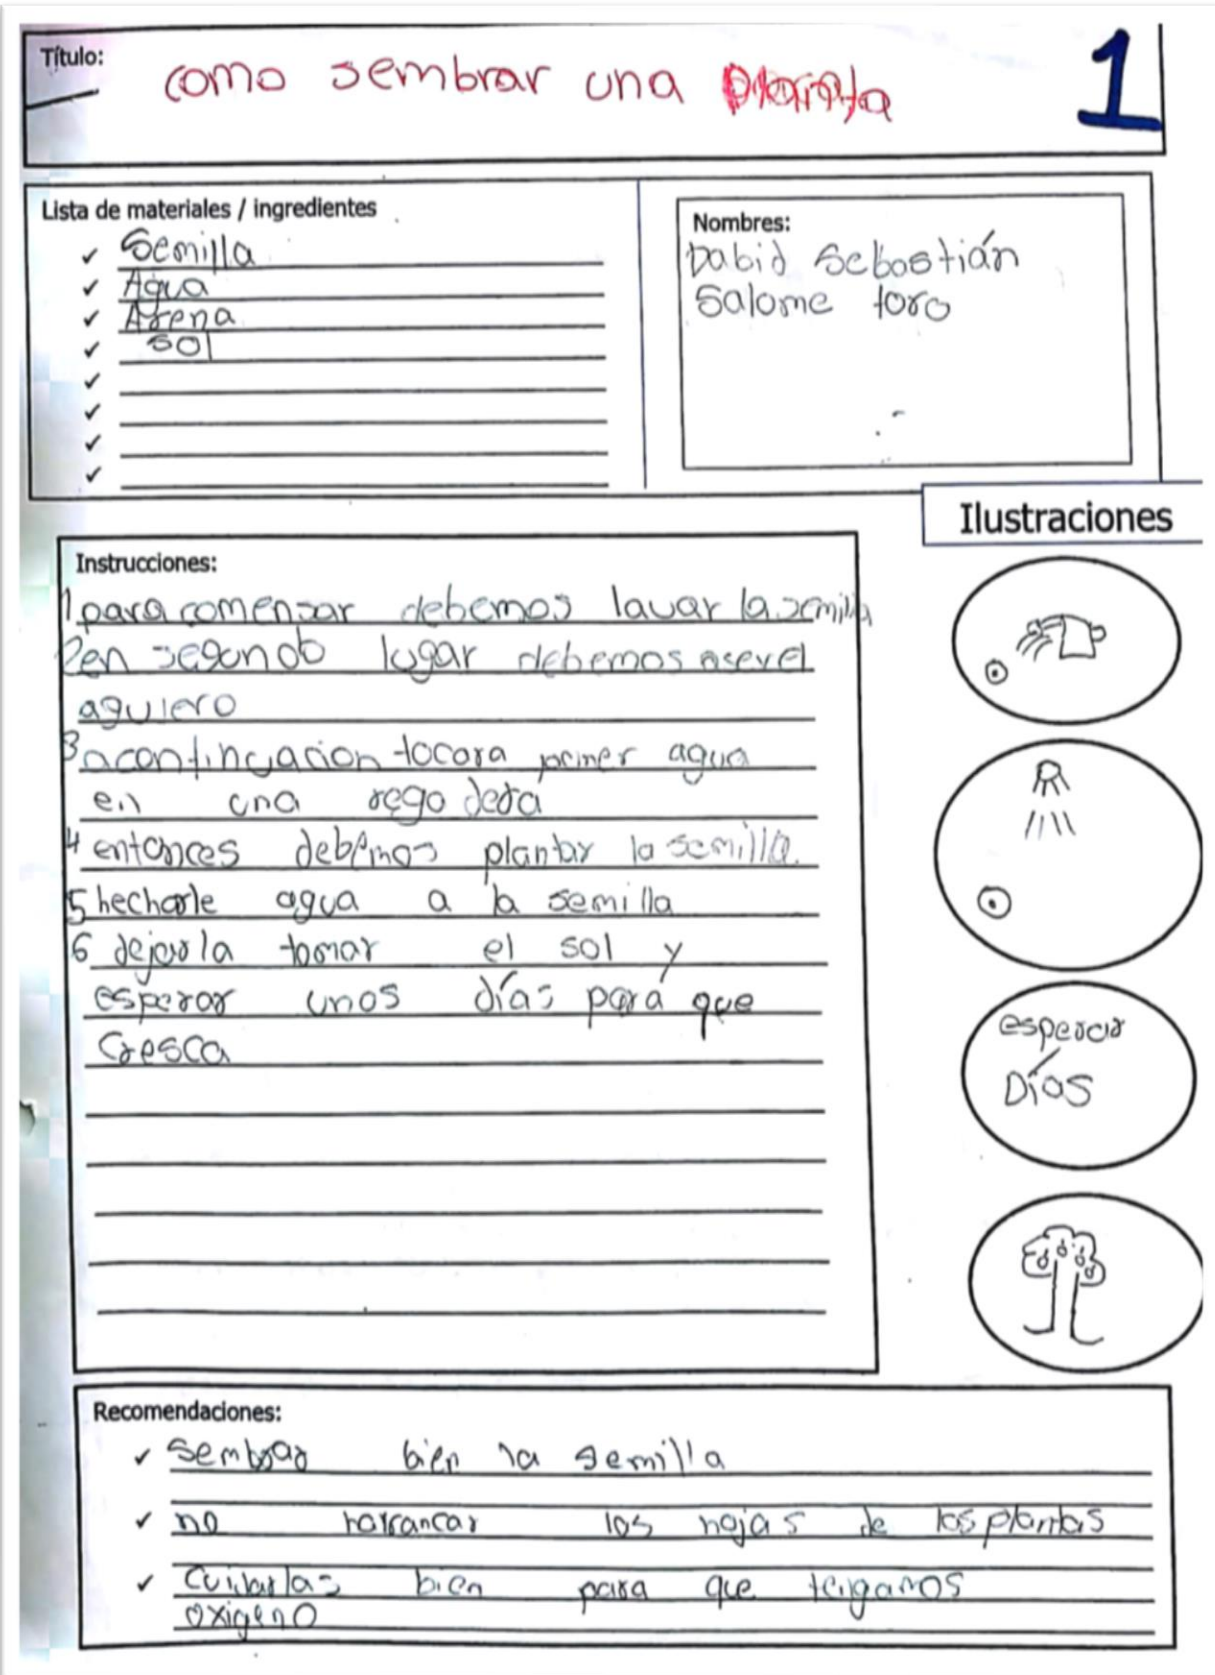 Título:
como sembrar una planta
1
Lista de materiales / ingredientes
Semilla
Agua
Arena
sol
Nombres:
Dabid Sebastián
Salome toro
Ilustraciones
Instrucciones:
1 para comensar debemos lavar la semilla
2 en segundo lugar debemos aser el
agujero
3 acontinuacion tocara poner agua
en una regadera
4 entonces debemos plantar la semilla.
5 hecharle agua a la semilla
6 dejarla tomar el sol y
esperar unos días para que
cresca
esperar
Días
Recomendaciones:
sembrar bien la semilla
no harrancar las hojas de las plantas
cuidarlas bien para que tengamos
oxigeno